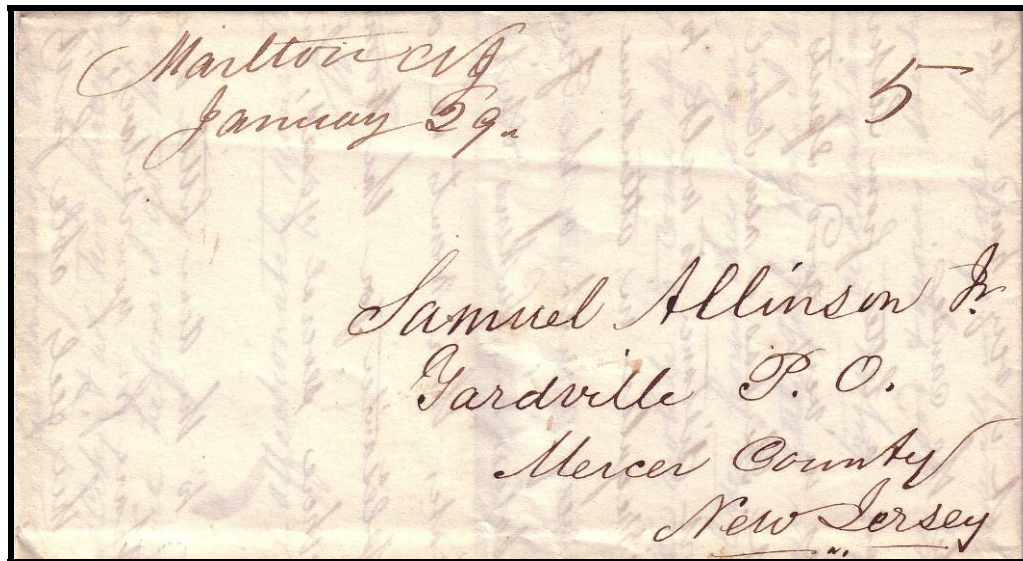 Marlton NJ
January 29
5
Samuel Allinson Jr.
Yardville P. O.
Mercer County
New Jersey